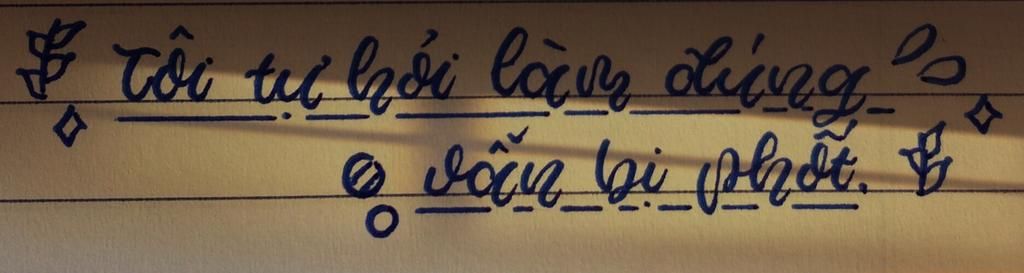 Tôi tự hỏi làm đúng
vẫn bị phốt.